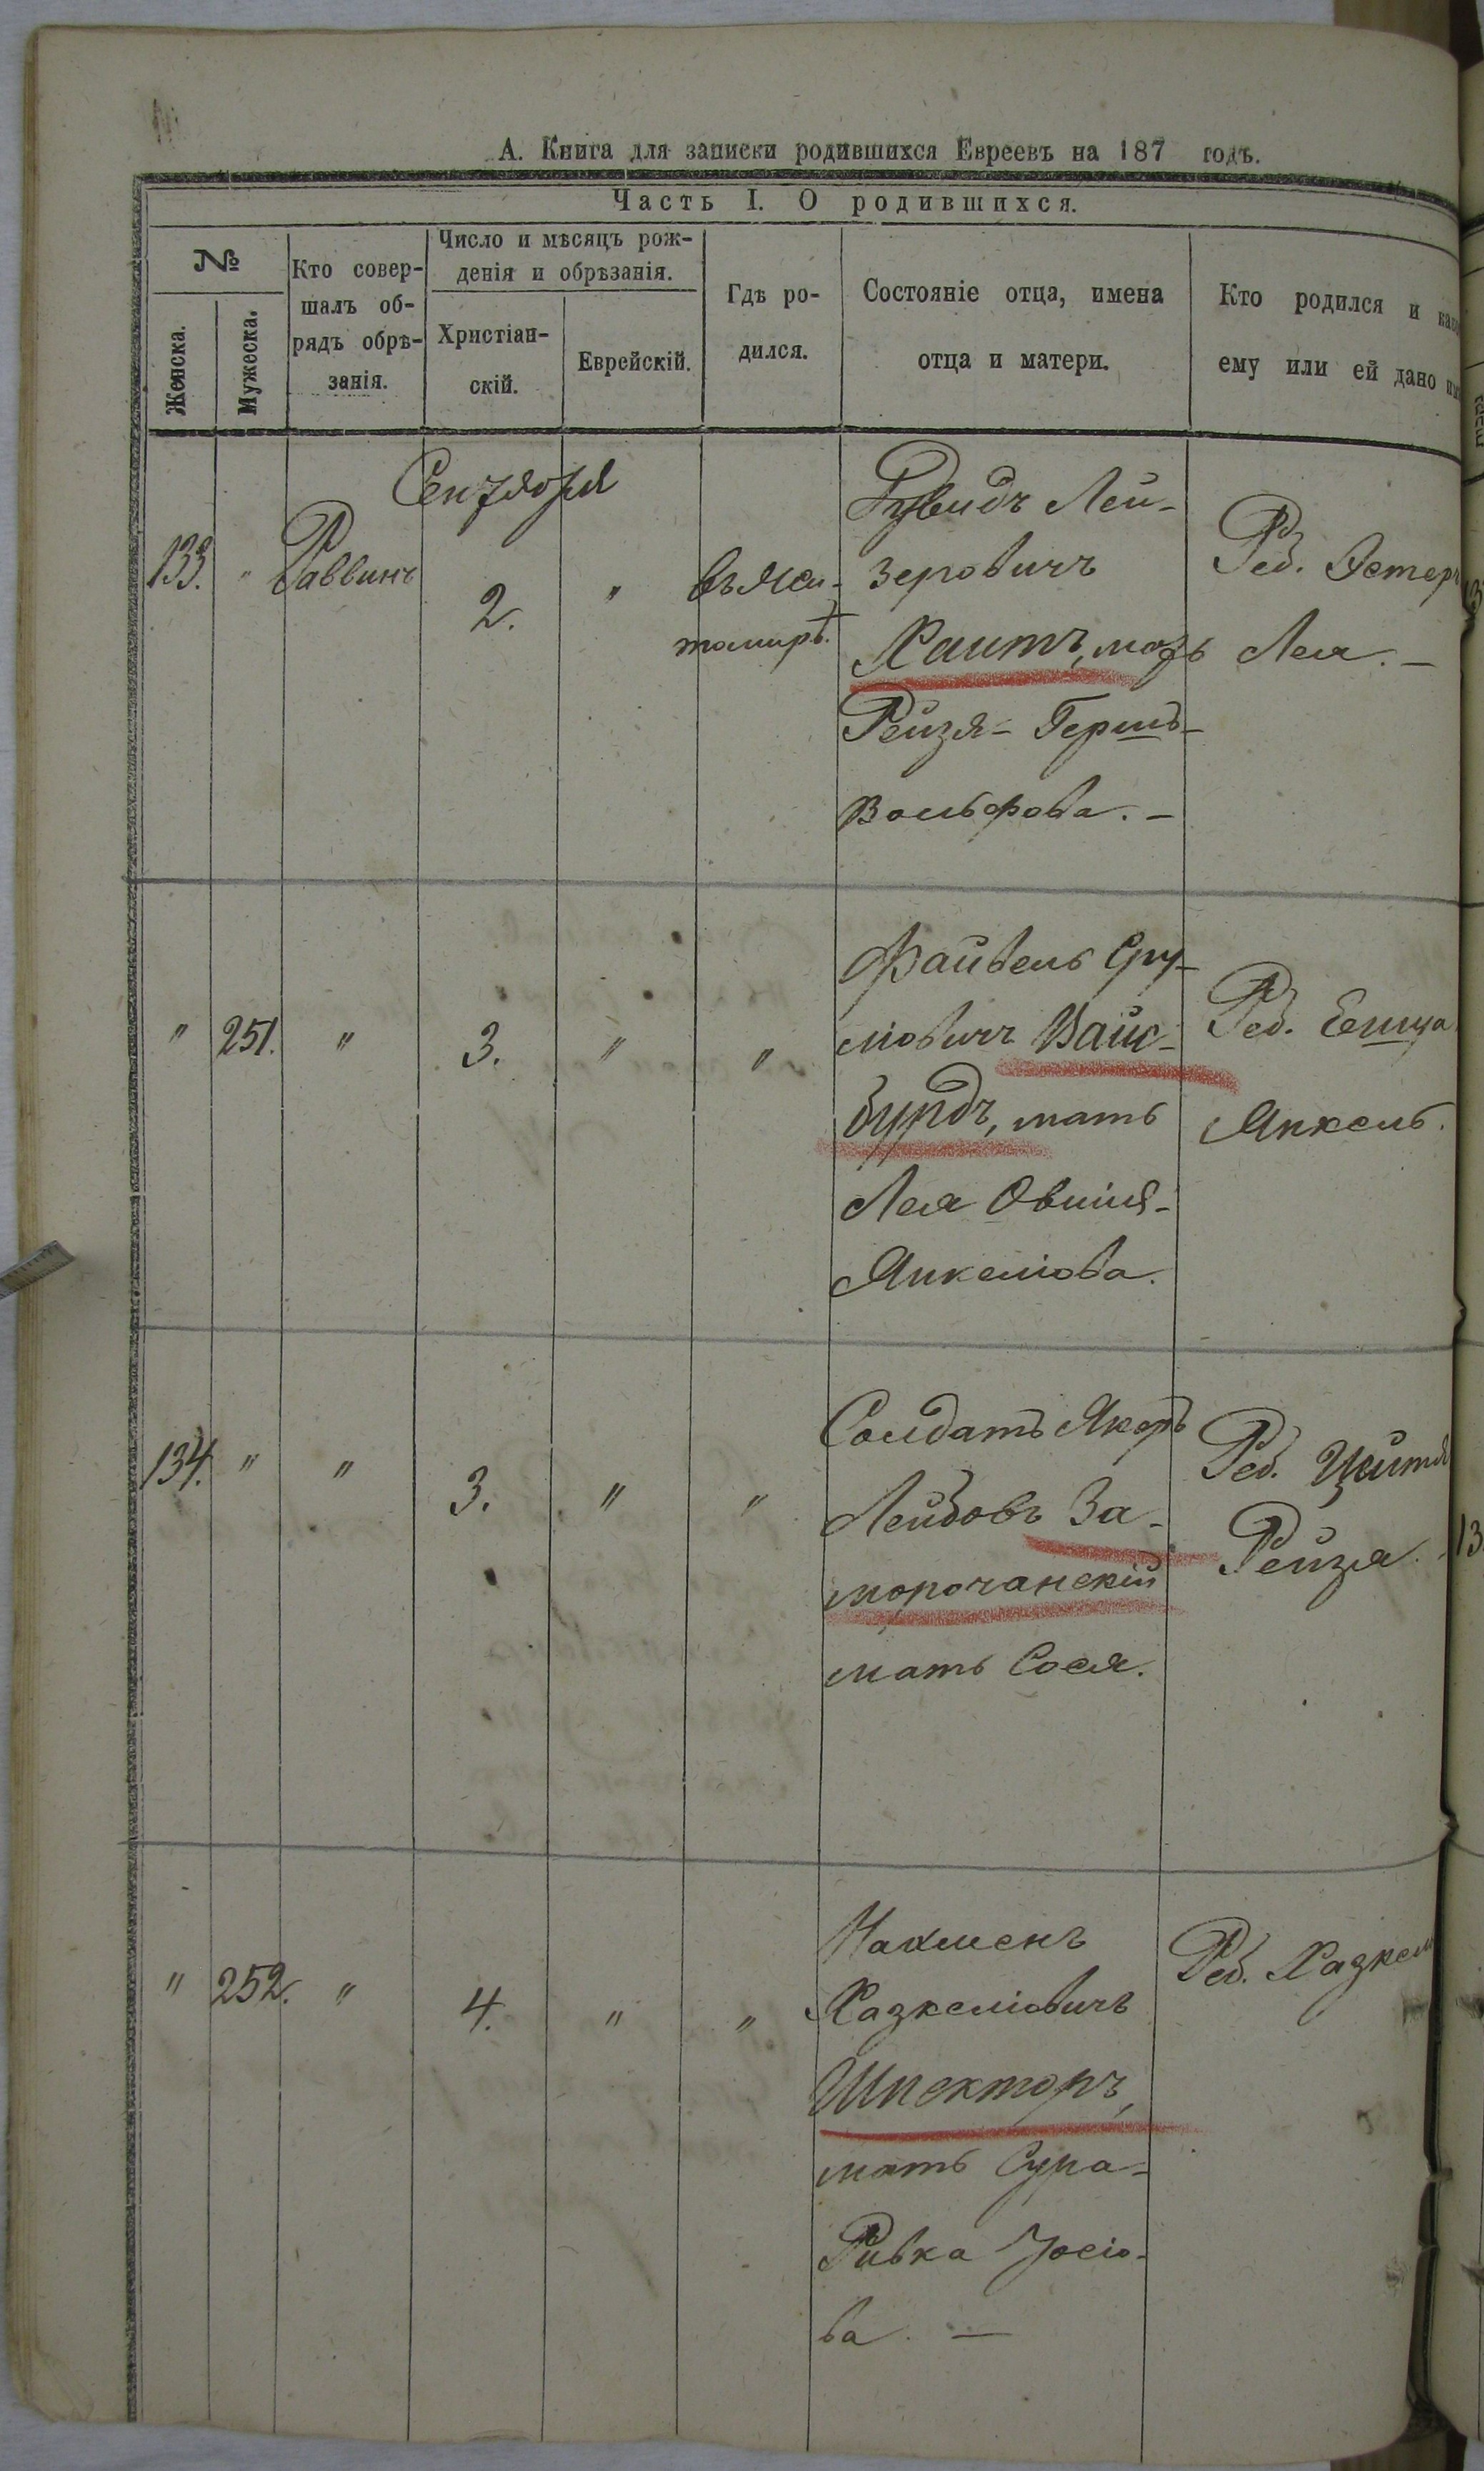 А. Книга для записки родившихся Евреевъ на 187 годъ.
Часть I. О родившихся.
№
Женска.
Мужеска.
Кто совер-
шалъ об-
рядъ обрѣ-
занія.
Число и мѣсяцъ рож-
денія и обрѣзанія.
Христіан-
скій.
Еврейскій.
Гдѣ ро-
дился.
Состояніе отца, имена
отца и матери.
Кто родился и
ему или ей дано
Сентября
133.
"
Раввинъ
2.
"
въ Жи-
томирѣ.
Лей-
зеровичъ
Хаитъ, мать
Рейзя-Гершъ-
Вольфова. —
Реб. Эстеръ
Лея. —
"
251.
"
3.
"
"
Файвель Сру-
лiовичъ Вайс-
бурдъ, мать
Лея Овшiя-
Янкелiова.
Реб.
Янкель.
134.
"
"
3.
"
"
Солдатъ
Лейбовъ За-
морочанскiй
мать Сося.
Реб.
Рейзя.
"
252.
"
4.
"
"
Нахменъ
Хазкелiовичъ
Шпекторъ,
мать Сура-
Ривка Iосiо-
ва. —
Реб. Хазкель